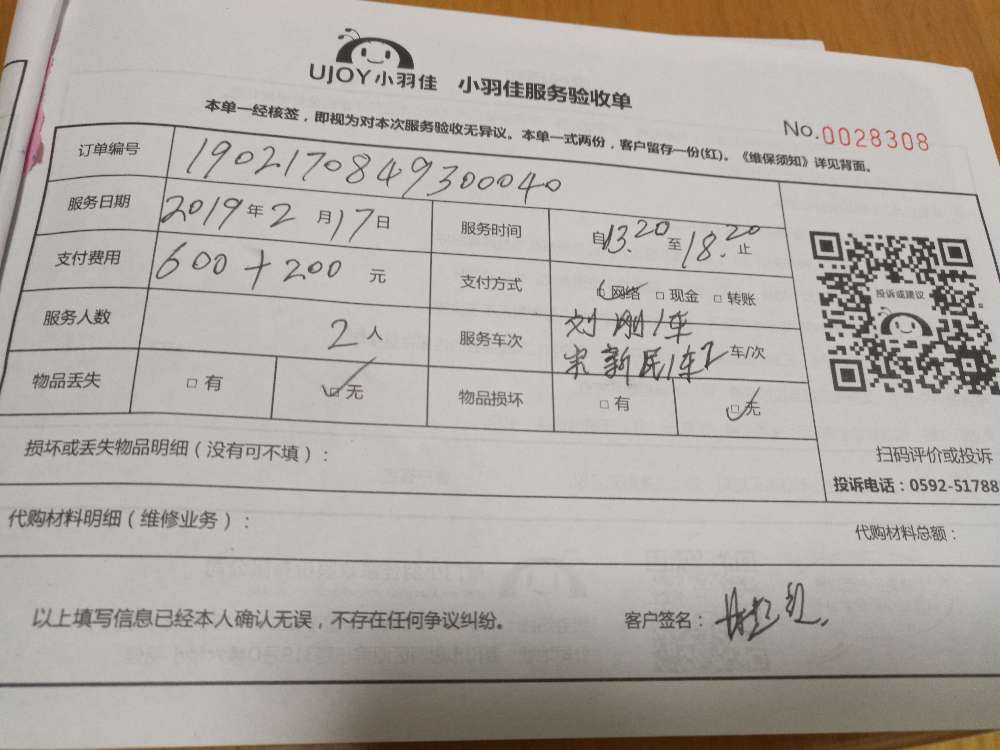 UJOY小羽佳 小羽佳服务验收单
No.0028308
本单一经核签，即视为对本次服务验收无异议。本单一式两份，客户留存一份(红)。《维保须知》详见背面。
订单编号 190217084930040
服务日期 2019年2月17日 服务时间 自13.20至18.20止
支付费用 600+200元 支付方式 □网络 □现金 □转账
服务人数 2人 服务车次 刘刚1车
宋新民1车 2车/次
物品丢失 □有 □无 物品损坏 □有 □无
投诉或建议
扫码评价或投诉
投诉电话：0592-51788
损坏或丢失物品明细（没有可不填）：
代购材料明细（维修业务）：
代购材料总额：
以上填写信息已经本人确认无误，不存在任何争议纠纷。 客户签名：